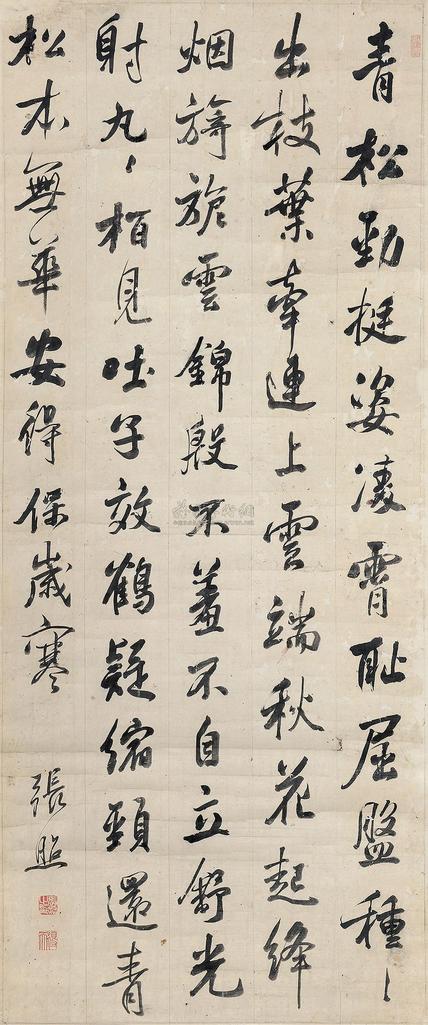 青松勁挺姿凌霄耻屈盤種〻
出枝葉牽連上雲端秋花起絳
烟旖旎雲錦殷不羞不自立舒光
射丸〻柏見吐子效鶴疑縮頸還青
松本無華安得保歲寒
張照